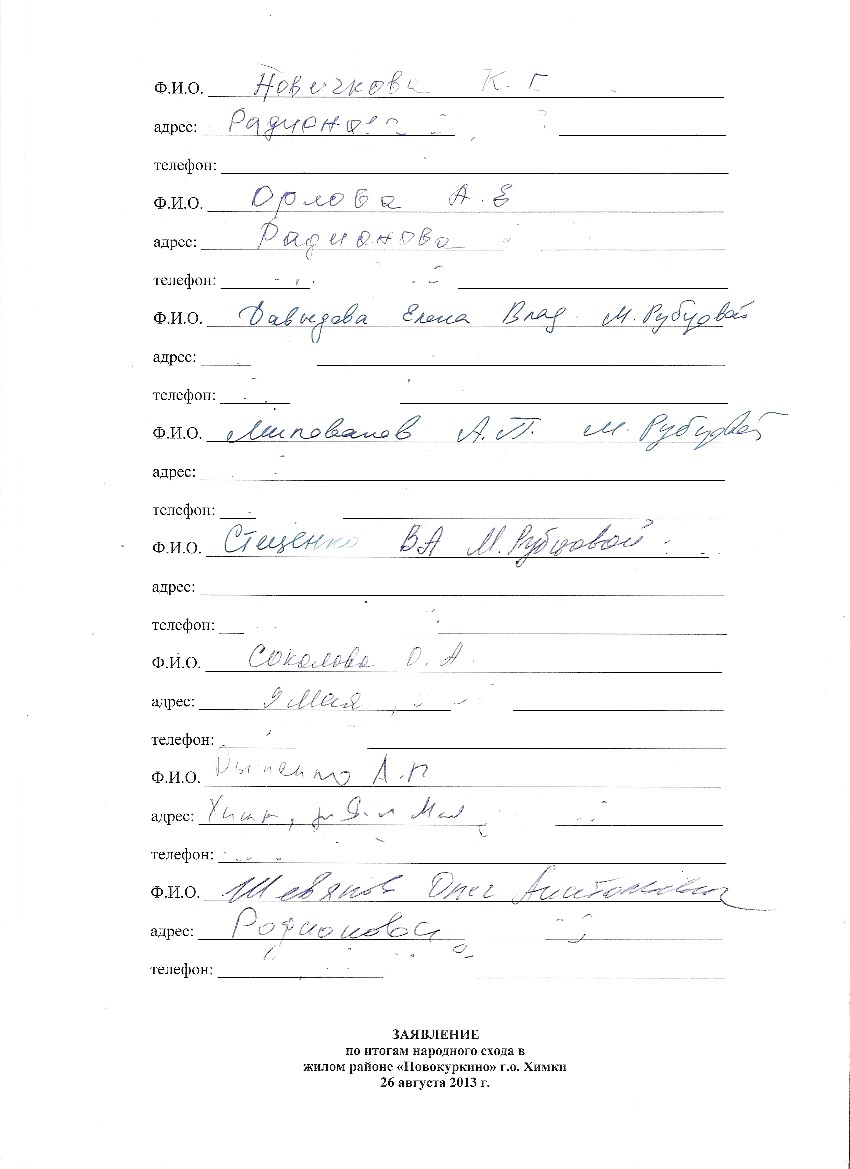 Ф.И.О. Новичкова К. Г
адрес: Радионова
телефон:
Ф.И.О. Орлова А. Е
адрес: Радионова
телефон:
Ф.И.О. Давыдова Елена Влад. М. Рубцовой
адрес:
телефон:
Ф.И.О. Милованов А.П. М. Рубцовой
адрес:
телефон:
Ф.И.О. Стеценко ВА М. Рубцовой
адрес:
телефон:
Ф.И.О. Соколова О. А.
адрес: 9 Мая
телефон:
Ф.И.О. А.П
адрес:
телефон:
Ф.И.О. Шевяков Олег Анатольевич
адрес: Родионова
телефон:
ЗАЯВЛЕНИЕ
по итогам народного схода в
жилом районе «Новокуркино» г.о. Химки
26 августа 2013 г.